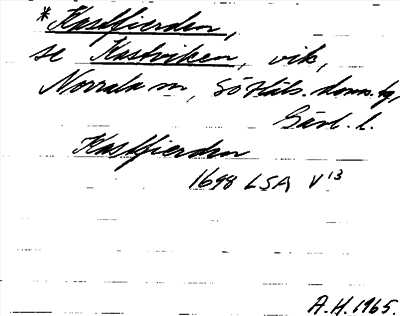 *Kastfierden,
se Kastviken, vik,
Norrala sn, SöHäls. doms. tg,
Gävl. l.
Kastfierden
1698 LSA V 13
A.H. 1965.